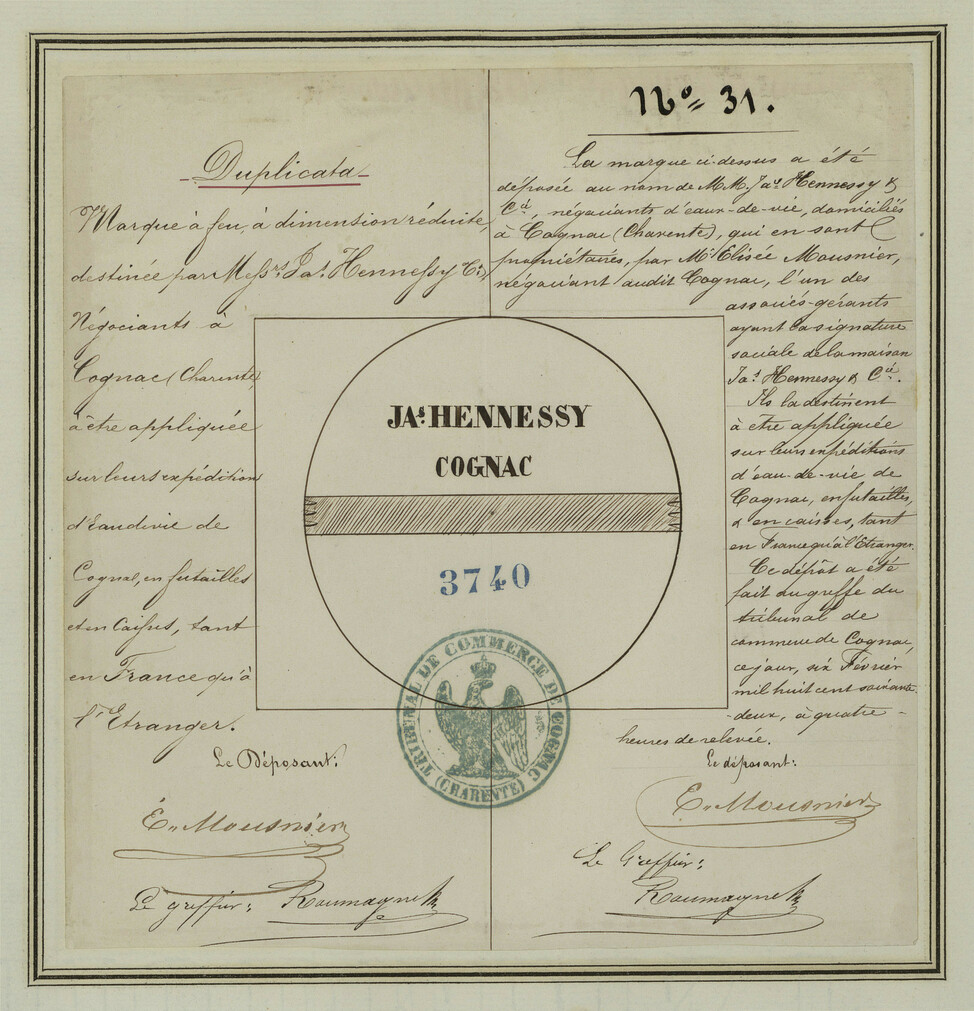 Duplicata
Marque à feu, à dimension réduite,
destinée par Messrs Jas Hennessy Cie
Négociants à
Cognac (Charente)
à être appliquée
sur leurs expéditions
d'Eaudevie de
Cognac, en futailles
et en Caisses, tant
en France qu'à
l'Etranger.
Le Déposant:
E. Mousnier
Le greffier: Roumagne
No 31.
La marque ci-dessus a été
déposée au nom de M.M. Jas Hennessy &
Cie, négociants d'eaux-de-vie, domiciliés
à Cognac (Charente), qui en sont
propriétaires, par Mr Elisée Mousnier,
négociant audit Cognac, l'un des
associés-gérants
ayant la signature
sociale de la maison
Jas Hennessy & Cie.
Ils la destinent
à être appliquée
sur leurs expéditions
d'eau-de-vie de
Cognac, en futailles,
& en caisses, tant
en France qu'à l'Etranger.
Ce dépôt a été
fait au greffe du
tribunal de
commerce de Cognac,
ce jour, six Février
mil huit cent soixante-
deux, à quatre
heures de relevée.
Le déposant:
E. Mousnier
Le Greffier:
Roumagne
JAS HENNESSY
COGNAC
3740
TRIBUNAL DE COMMERCE DE COGNAC
(CHARENTE)